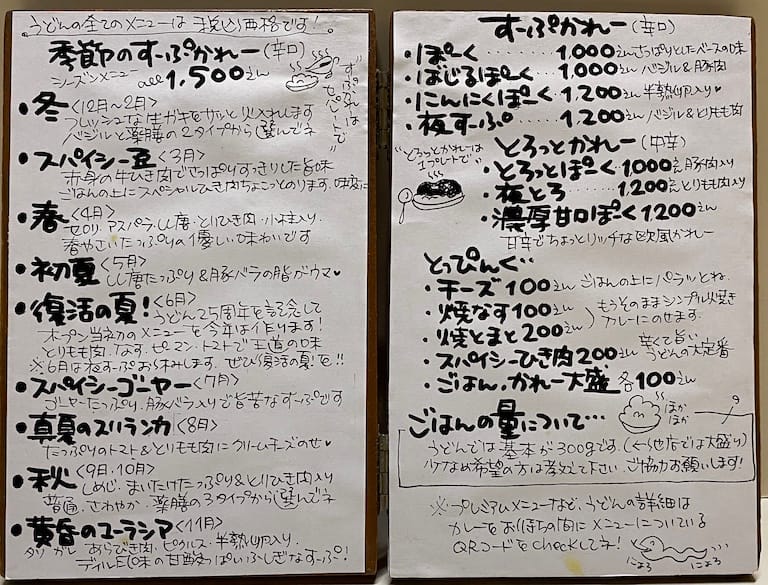 うどんの全てのメニューは税込価格です!
季節のすーぷかれー(辛口)
シーズンメニュー all 1,500えん
すーぷかれーはセパレートで
・冬<12月〜2月>
フレッシュな生ガキをサッと火入れします
バジルと薬膳の2タイプから選んでネ
・スパイシー豆<3月>
赤身の牛ひき肉でさっぱりすっきりした旨味
ごはんの上にスペシャルひき肉ちょこっとのります。味変に
・春<4月>
セロリ、アスパラ、しし唐・とりひき肉・小柱入り
春やさいたっぷりの優しい味わいです
・初夏<5月>
しし唐たっぷり&豚バラの脂がウマ♥
・復活の夏!<6月>
うどん25周年を記念して
オープン当初のメニューを今年は作ります!
とりもも肉、なす、ピーマン、トマトで王道の味
※6月は夜すーぷお休みします。ぜひ復活の夏を!!
・スパイシーゴーヤー<7月>
ゴーヤーたっぷり、豚バラ入りで旨苦なすーぷです
・真夏のスリランカ<8月>
たっぷりのトマト&とりもも肉にクリームチーズのせ♥
・秋<9月、10月>
しめじ、まいたけたっぷり&とりひき肉入り
普通、さわやか、薬膳の3タイプから選んでネ
・黄昏のユーラシア<11月>
あらびき肉、ピクルス、半熟卵入り
ディル風味の甘酸っぱいふしぎなすーぷ!
すーぷかれー(辛口)
・ぽーく……1,000えん さっぱりとしたベースの味
・ばじるぽーく……1,000えん バジル&豚肉
・にんにくぽーく…1,200えん 半熟卵入り♥
・夜すーぷ……1,200えん バジル&とりもも肉
とろっとかれー(中辛)
"とろっとかれーは1プレートで"
・とろっとぽーく 1,000えん 豚肉入り
・夜とろ……1,200えん とりもも肉入り
・濃厚甘口ぽーく 1,200えん
甘辛でちょっとリッチな欧風かれー
とっぴんぐ…
・チーズ 100えん ごはんの上にパラッとね。
・焼なす 100えん
・焼とまと 200えん
もうそのままシンプル焼き
カレーにのせます。
・スパイシーひき肉 200えん 辛くて旨い うどんの大定番
・ごはん、かれー大盛 各100えん
ごはんの量について…
ほか ほか
うどんでは基本が300gです。(←他店では大盛り)
少なめ希望の方は教えて下さい。ご協力お願いします!
※プレミアムメニューなど、うどんの詳細は
カレーをお待ちの間にメニューについている
QRコードをCheckしてネ!
にょろ にょろ